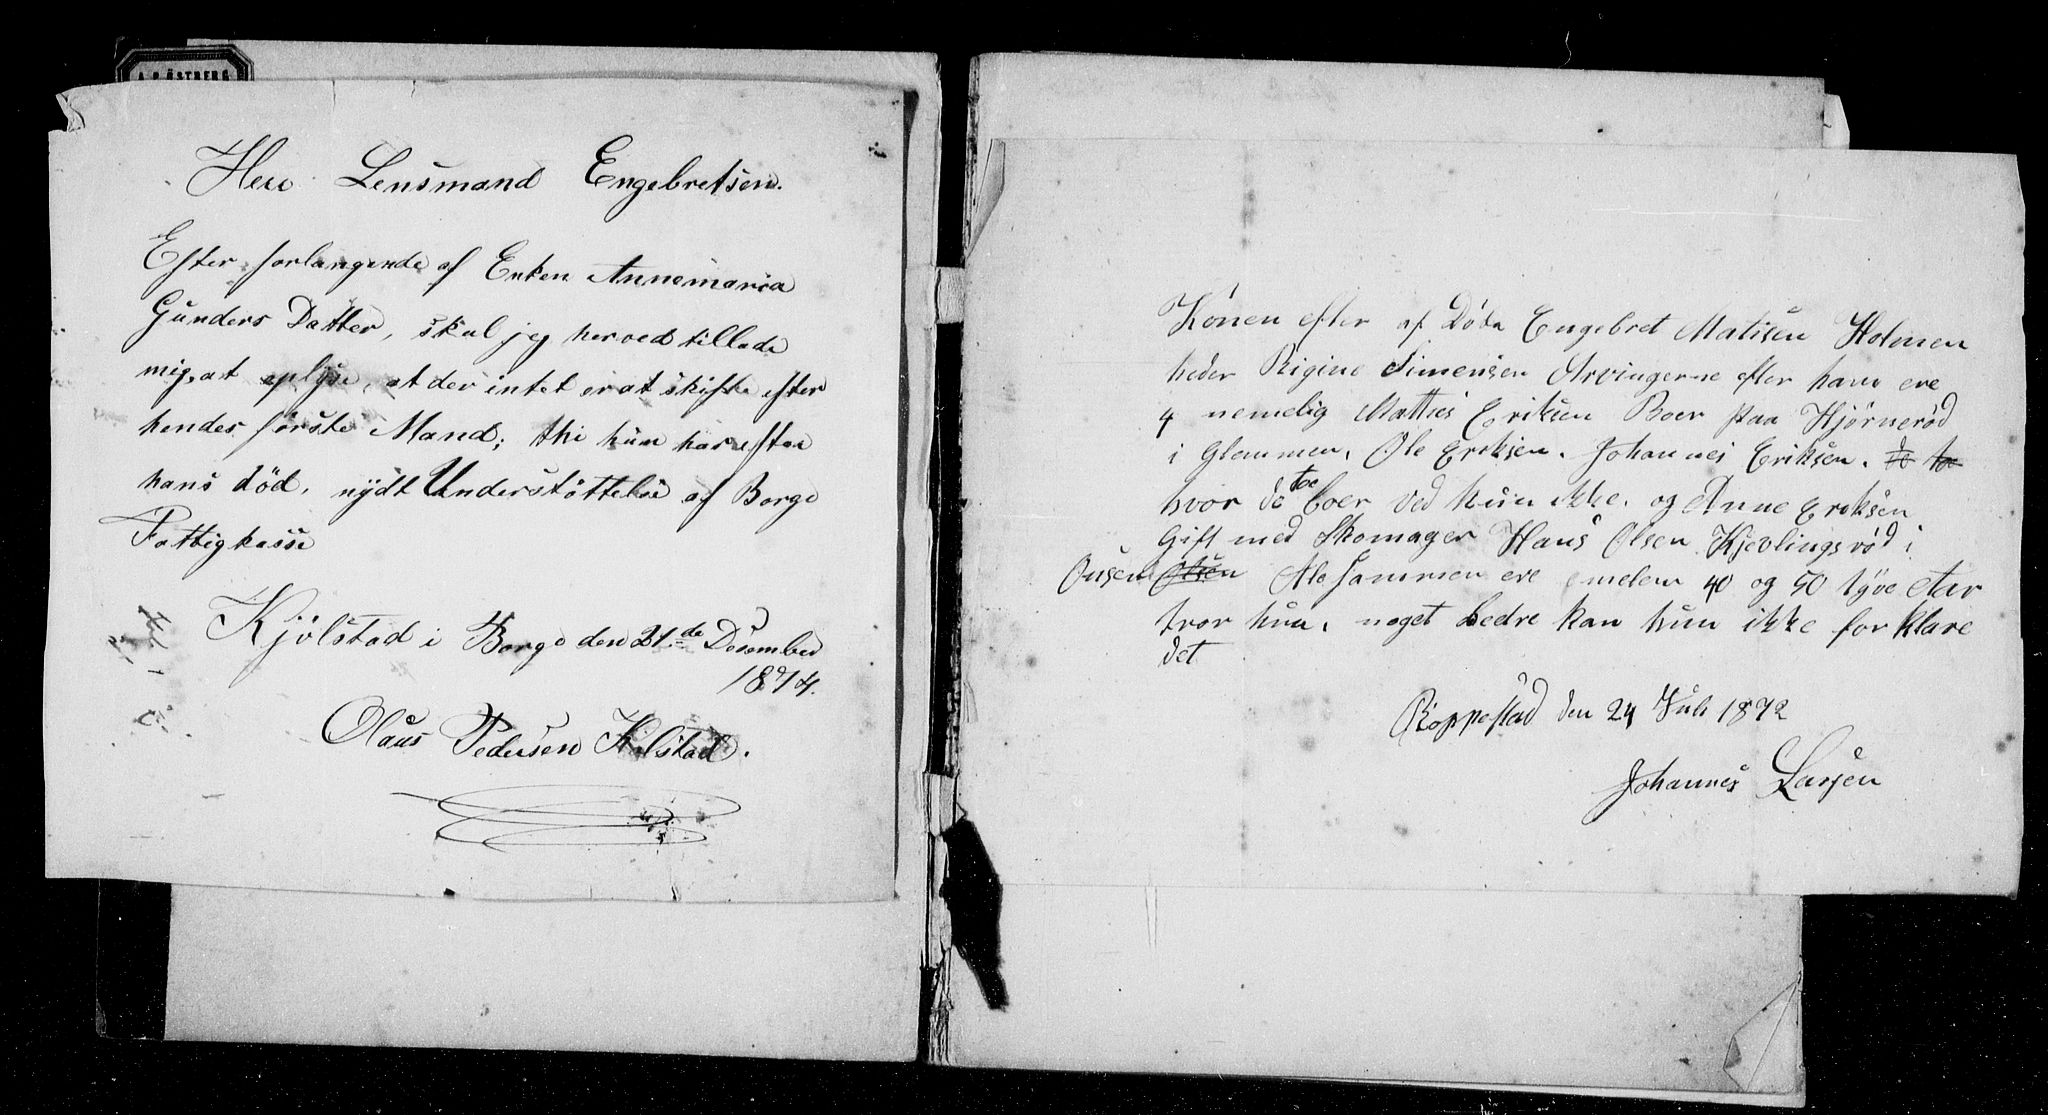 A. P. ÖSTBERG
Herr Lensmand Engebretsen.
Efter forlangende af Enken Annemaria
Gunders Datter, skal jeg herved tillade
mig, at oplyse, at der intet er at skifte efter
hendes förste Mand; thi hun har efter
hans död, nydt Understöttelse af Borge
Fattigkasse
Kjölstad i Borge den 21de Desember
1874.
Olaus Pedersen Kolstad.
Konen efter af Døda Engebret Matisen Holmen
heder Rigine Simensen Arvingerne efter ham ere
4 nemelig Matties Eriksen Boer paa Hjørnerød
i Glemmen, Ole Eriksen. Johannes Eriksen.
hvor de toe boer ved hun ikke. og Anne Eriksen
Gift med Skomager Hans Olsen Kjevlingsrød i
Onsen Olsen Alesammen ere melem 40 og 50 tyve Aar
tror hun, noget bedre kan hun ikke forklare
det
Roppestad den 24 Juli 1872
Johannes Larsen